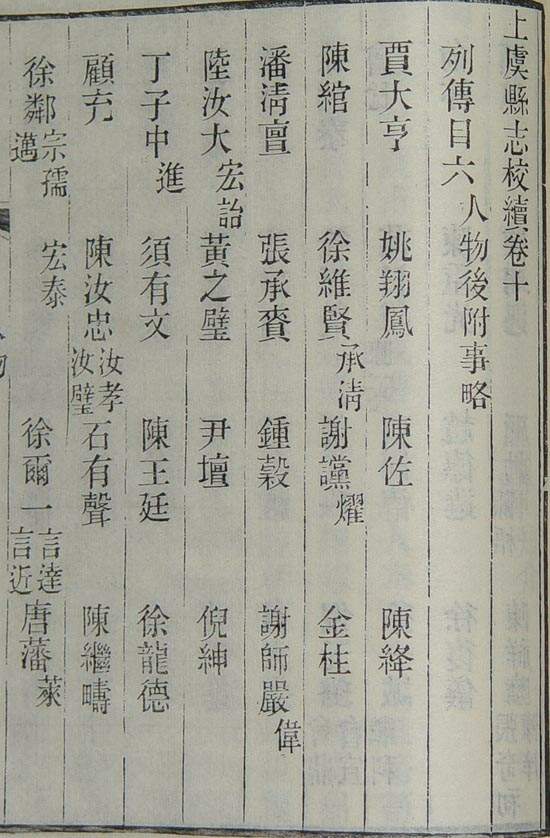 上虞縣志校續卷十
列傳目六人物後附事略
賈大亨 姚翔鳳 陳佐 陳絳
陳綰 徐維賢承清 謝讜燿 金柱
潘清亶 張承賚 鍾穀 謝師嚴偉
陸汝大宏詒 黃之璧 尹壇 倪紳
丁子中進 須有文 陳王廷 徐龍德
顧充 陳汝忠汝孝汝璧 石有聲 陳繼疇
徐鄰宗孺邁 宏泰 徐爾一言達言近 唐藩萊